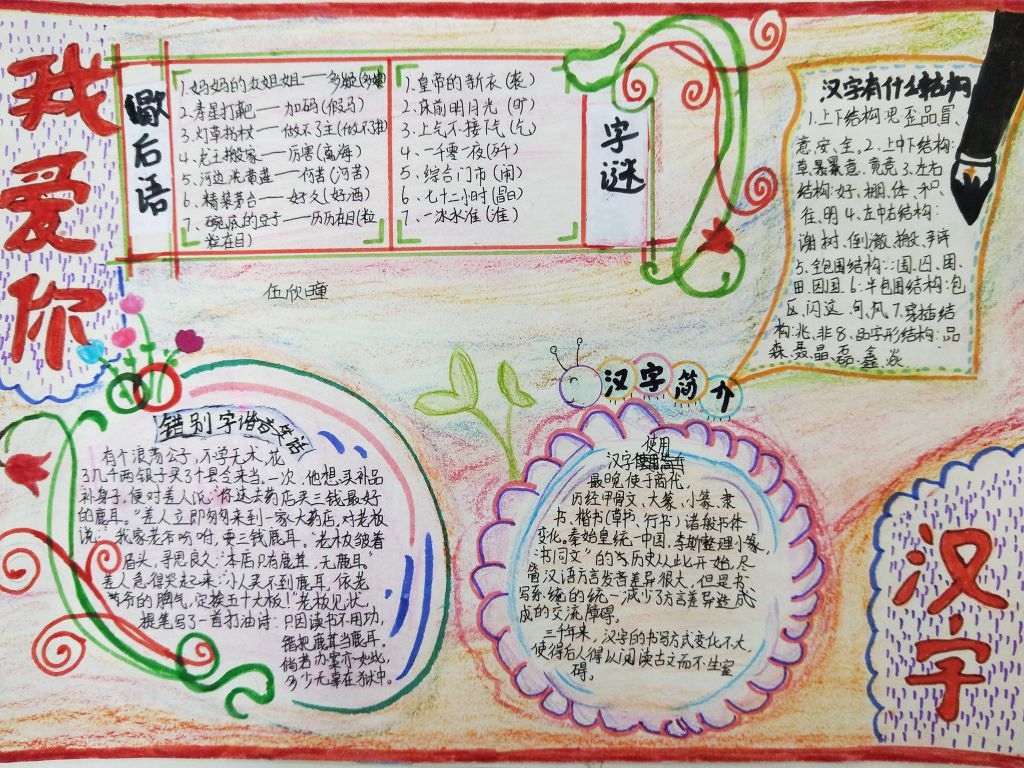 我爱你
歇后语
1.妈妈的女姐姐——多姨
2.寿星打靶——加码(假马)
3.灯草粉杖——做不了主
4、龙王搬家——厉害(离海)
5、河边洗黄莲——何苦(河苦)
6、精装茅台——好久(好酒)
7、碗底的豆子——历历在目(粒
粒在目)
字谜
1.皇帝的新衣(袭)
2.床前明月光(旷)
3.上气不接下气(乞)
4、一千零一夜(歼)
5、综合门市(闹)
6、七十二小时(晶)
7、一冰水准(淮)
伍欣瞳
汉字有什么结构
1.上下结构:思歪品冒、
意、安、全、2、上中下结构:
草暴意、竟竞3、左右
结构:好、棚、体、和、
住、明4、左中右结构:
谢、树、倒、澈、搬、辩
5、全包围结构:国、囚、困、
田、因固、6:半包围结构:包
区、闪、这、句、风7、穿插结
构:兆、非8、品字形结构:品
森、聂、晶、磊、鑫、焱
错别字谐音笑话
有个浪荡公子,不学无术,花
了几千两银子买了个县令来当。一次,他想买补品
补身子,便对差人说:"你这去药店买三钱最好
的鹿耳。"差人立即匆匆来到一家大药店,对老板
说:"我家老爷吩咐,要三钱鹿耳。"老板皱着
眉头,寻思良久:"本店只有鹿茸,无鹿耳。"
差人急得哭起来:"小人买不到鹿耳,依老
爷的脾气,定挨五十大板!"老板见状,
提笔写了一首打油诗:只因读书不用功,
错把鹿茸当鹿耳。
倘若办案亦如此,
多少无辜在狱中。
汉字简介
使用
汉字
最晚使于商代,
历经甲骨文、大篆、小篆、隶
书、楷书(草书、行书)诸般书体
变化。秦始皇统一中国,李斯整理小篆,
"书同文"的历史从此开始,尽
管汉语方言发音差异很大,但是书
写系统的统一减少了方言差异造成
成的交流障碍。
三千年来,汉字的书写方式变化不大,
使得后人得以阅读古文而不生窒
碍。
汉字